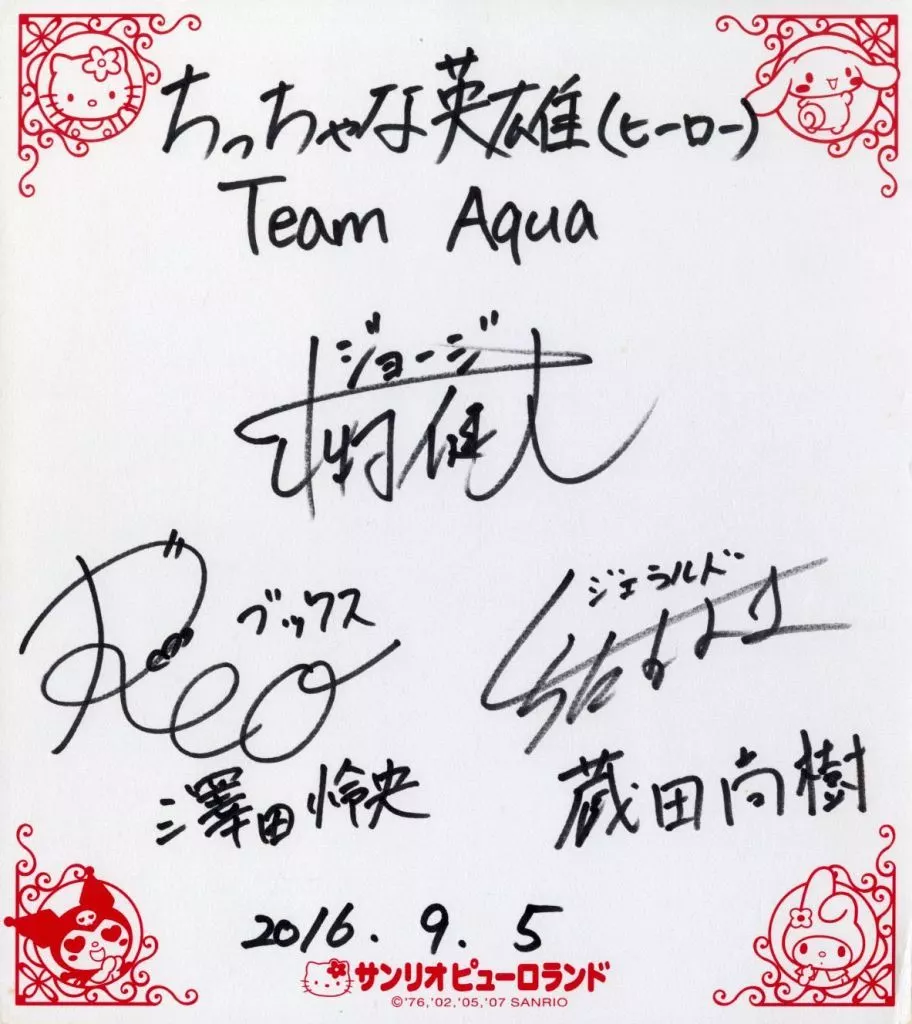 ちっちゃな英雄(ヒーロー)
Team Aqua
ジョージ
ブックス
Reo
澤田怜央
ジェラルド
蔵田尚樹
2016.9.5
サンリオピューロランド
©'76,'02,'05,'07 SANRIO